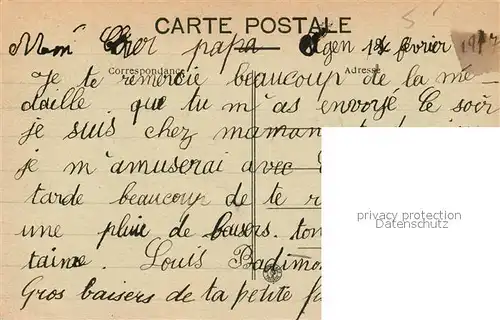 CARTE POSTALE
Mon Cher papa Agen 12 février 1917
Correspondance Adresse
Je te remercie beaucoup de la mé
daille que tu m'as envoyé Ce soir
je suis chez maman
je m'amuserai avec
tarde beaucoup de te
une pluie de baisers. ton
taine. Louis
Gros baisers de ta petite
privacy protection
Datenschutz